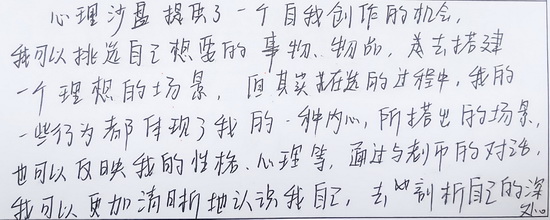 心理沙盘提供了一个自我创作的机会，
我可以挑选自己想要的事物、物品，来去搭建
一个理想的场景，但其实在选的过程中，我的
一些行为都体现了我的一种内心，所搭出的场景，
也可以反映我的性格、心理等，通过与老师的对话，
我可以更加清晰地认识我自己，去剖析自己的深
处。